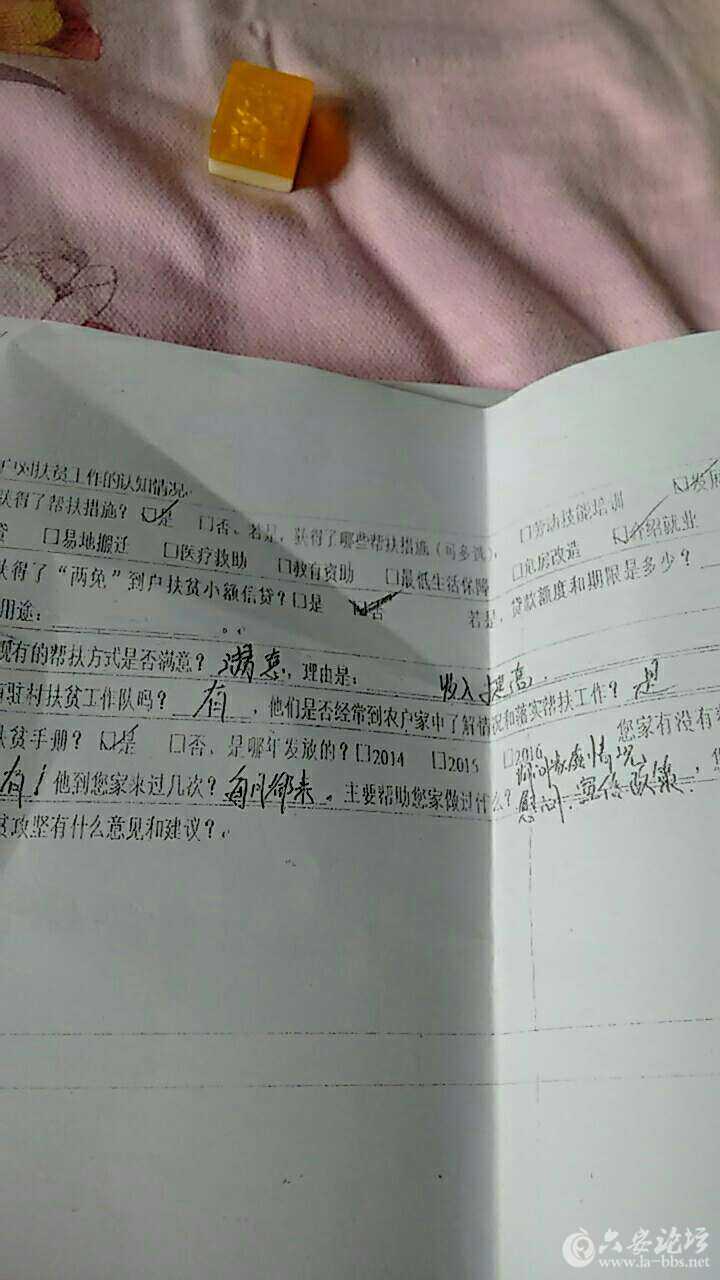 户对扶贫工作的认知情况
获得了帮扶措施? ☑是 □否、若是,获得了哪些帮扶措施(可多选), □劳动技能培训 ☑发展
贷 □易地搬迁 □医疗救助 □教育资助 □最低生活保障 □危房改造 ☑介绍就业
获得了“两免”到户扶贫小额信贷? □是 ☑否 若是,贷款额度和期限是多少?
用途: 。
现有的帮扶方式是否满意? 满意,理由是: 收入提高.
有驻村扶贫工作队吗? 有,他们是否经常到农户家中了解情况和落实帮扶工作? 是
扶贫手册? ☑是 □否、是哪年发放的? □2014 □2015 □2016 您家有没有
有! 他到您家来过几次? 每月都来。主要帮助您家做过什么? 家庭情况、慰问、宣传政策.
贫攻坚有什么意见和建议?
六安论坛
www.la-bbs.net